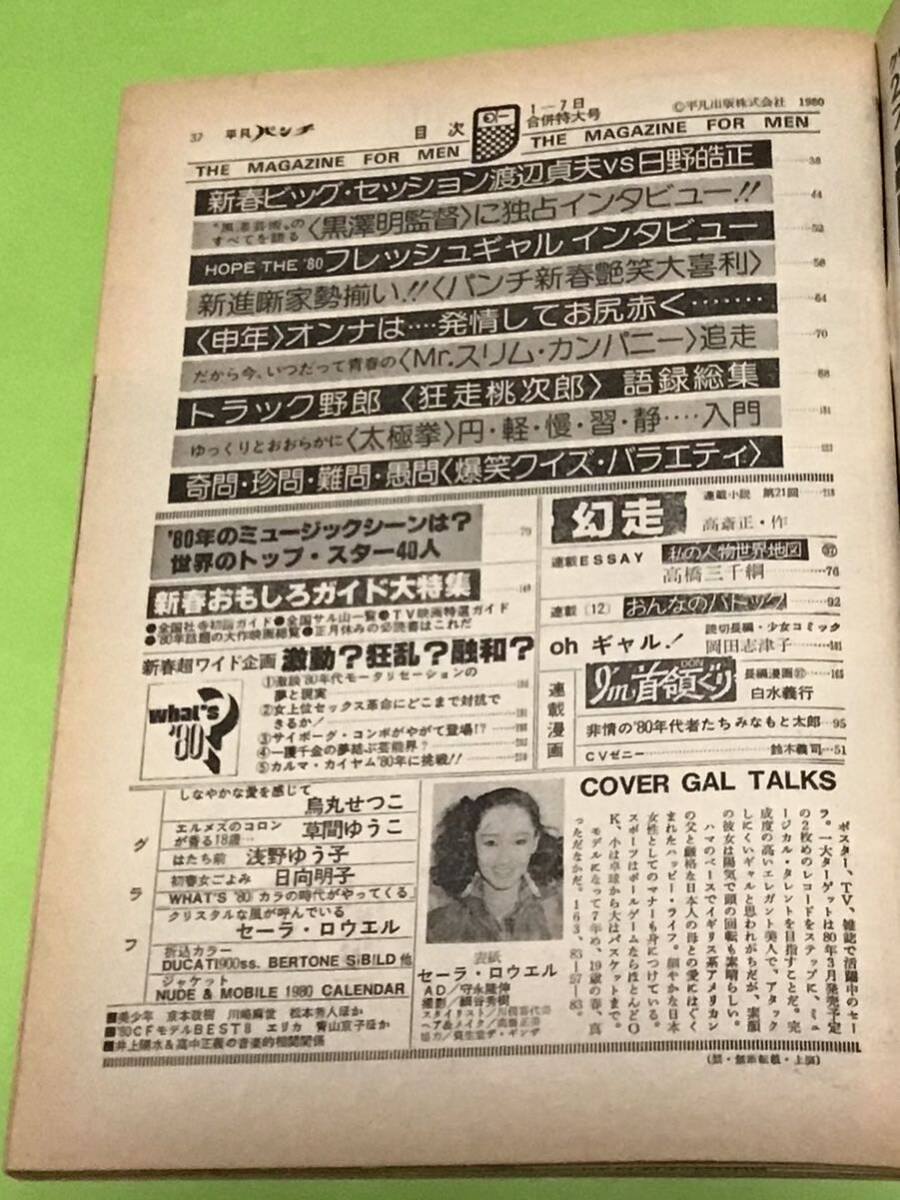 37 平凡パンチ 目次 1―7日 合併特大号 ©平凡出版株式会社 1980
THE MAGAZINE FOR MEN THE MAGAZINE FOR MEN
新春ビッグ・セッション渡辺貞夫VS日野皓正……38
のすべてを語る〈黒澤明監督〉に独占インタビュー!!……44
HOPE THE '80フレッシュギャル インタビュー……52
新進噺家勢揃い!!〈パンチ新春艶笑大喜利〉……58
〈申年〉オンナは‥‥発情してお尻赤く………64
だから今、いつだって青春の〈Mr.スリム・カンパニー〉追走……70
トラック野郎〈狂走桃次郎〉語録総集……88
ゆっくりとおおらかに〈太極拳〉円・軽・慢・習・静‥‥入門
奇問・珍問・難問・愚問〈爆笑クイズ・バラエティ〉
'80年のミュージックシーンは?
世界のトップ・スター40人……79
新春おもしろガイド大特集
●全国社寺初詣ガイド●全国サル山一覧●TV映画特選ガイド
●'80年話題の大作映画総覧●正月休みの必読書はこれだ
新春超ワイド企画 激動?狂乱?融和?
what's '80?
①激談'80年代モータリゼーションの
夢と現実
②女上位セックス革命にどこまで対抗で
きるか!
③サイボーグ・コンボがやがて登場!?
④一攫千金の夢結ぶ芸能界?
⑤カルマ・カイヤム'80年に挑戦!!
幻走 連載小説 第21回
高斎正・作
連載ESSAY 私の人物世界地図
高橋三千綱……76
連載(12) おんなのパドック……92
oh ギャル! 読切長編・少女コミック
岡田志津子
連載漫画
I'm首領ぐり DON 長編漫画……165
白水義行
非情の'80年代者たち みなもと太郎…95
CVゼニー……鈴木義司…51
グラフ
しなやかな愛を感じて 烏丸せつこ
エルメスのコロンが香る18歳… 草間ゆうこ
はたち前 浅野ゆう子
初春女ごよみ 日向明子
WHAT'S '80 カラの時代がやってくる
クリスタルな風が呼んでいる
セーラ・ロウエル
折込カラー
DUCATI900ss. BERTONE SiBiLD 他
ジャケット
NUDE & MOBILE 1980 CALENDAR
■美少年 京本政樹 川崎麻世 松本秀人ほか
■'80CFモデルBEST8 エリカ 青山京子ほか
■井上陽水&高中正義の音楽的相関関係
表紙
セーラ・ロウエル
AD/守永隆伸
撮影/細谷秀樹
スタイリスト/川俣喜代壽
ヘア&メイク/高藤正芬
協力/資生堂ザ・ギンザ
COVER GAL TALKS
ポスター、TV、雑誌で活躍中のセー
ラ。一大ターゲットは80年3月発売予定
の2枚めのレコードをステップに、ミュ
ージカル・タレントを目指すことだ。完
成度の高いエレガント美人で、アタック
しにくいギャルと思われがちだが、素顔
の彼女は陽気で頭の回転も素晴らしい。
ハマのベースでイギリス系アメリカン
の父と厳格な日本人の母とのあいだに生
まれたハッピー・ライフ。細やかな日本
女性としてのマナーも身につけている。
スポーツはボールゲームならほとんどO
K、小は卓球から大はバスケットまで。
モデルになって7年め、19歳の春、真
っただなかだ。163、83―57―83。
(禁・無断転載・上演)